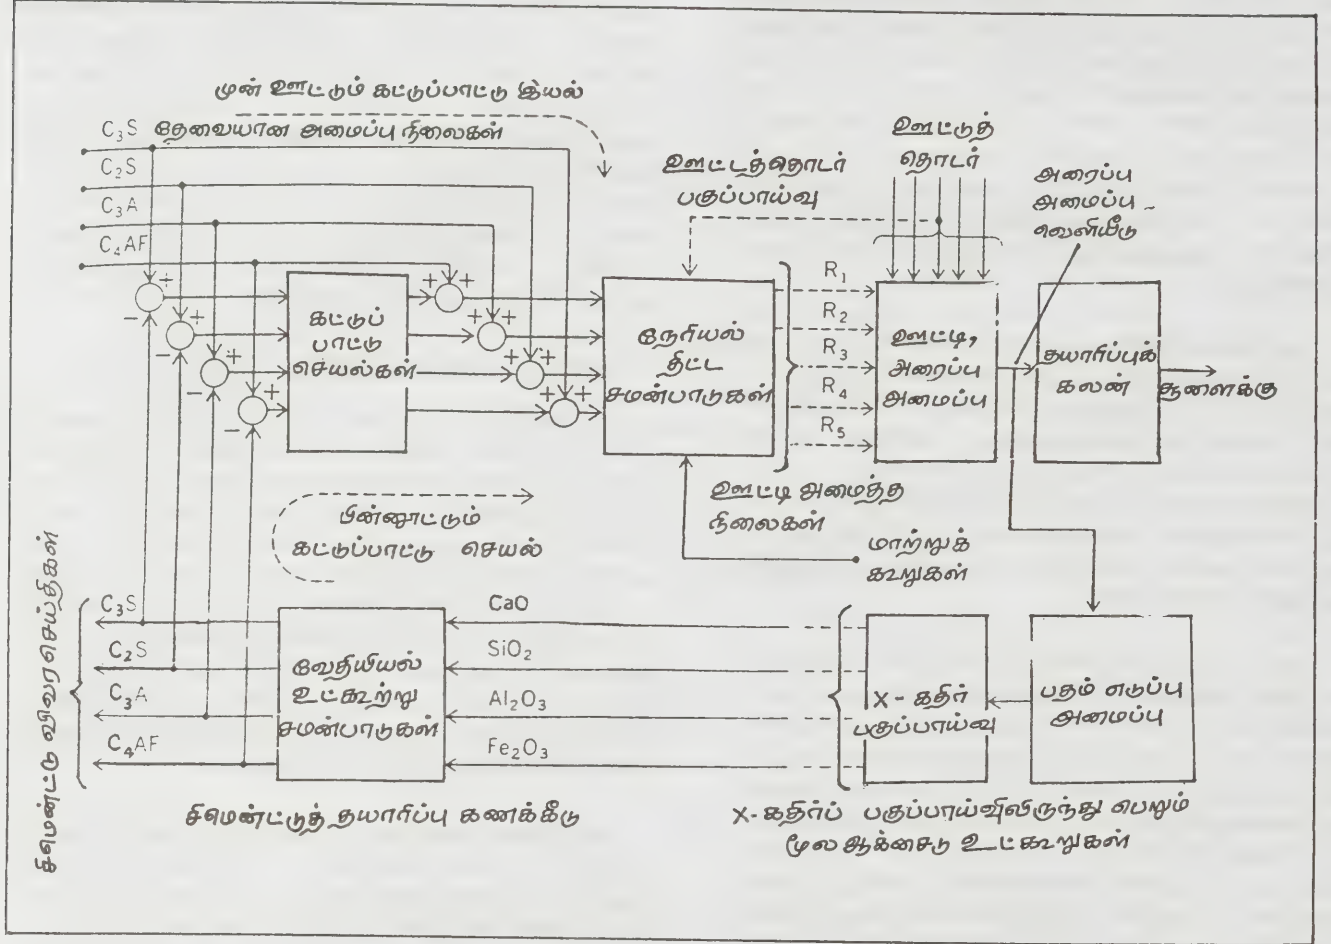 முன் ஊட்டும் கட்டுப்பாட்டு இயல்
C₃S தேவையான அமைப்பு நிலைகள்
C₂S
C₃A
C₄AF
ஊட்டத்தொடர்
பகுப்பாய்வு
ஊட்டுத்
தொடர்
அரைப்பு
அமைப்பு
வெளியீடு
+
+
+
+
−
−
−
−
கட்டுப்
பாட்டு
செயல்கள்
+ +
+ +
+ +
+ +
நேரியல்
திட்ட
சமன்பாடுகள்
R₁
R₂
R₃
R₄
R₅
ஊட்டி,
அரைப்பு
அமைப்பு
தயாரிப்புக்
கலன்
சூளைக்கு
ஊட்டி அமைத்த
நிலைகள்
மாற்றுக்
கூறுகள்
பின்னூட்டும்
கட்டுப்பாட்டு செயல்
சிமென்ட்டு விவரசெய்திகள்
C₃S
C₂S
C₃A
C₄AF
வேதியியல்
உட்கூற்று
சமன்பாடுகள்
CaO
SiO₂
Al₂O₃
Fe₂O₃
X- கதிர்
பகுப்பாய்வு
பதம் எடுப்பு
அமைப்பு
சிமென்ட்டுத் தயாரிப்பு கணக்கீடு
X-கதிர்ப் பகுப்பாய்விலிருந்து பெறும்
மூல ஆக்சைடு உட்கூறுகள்